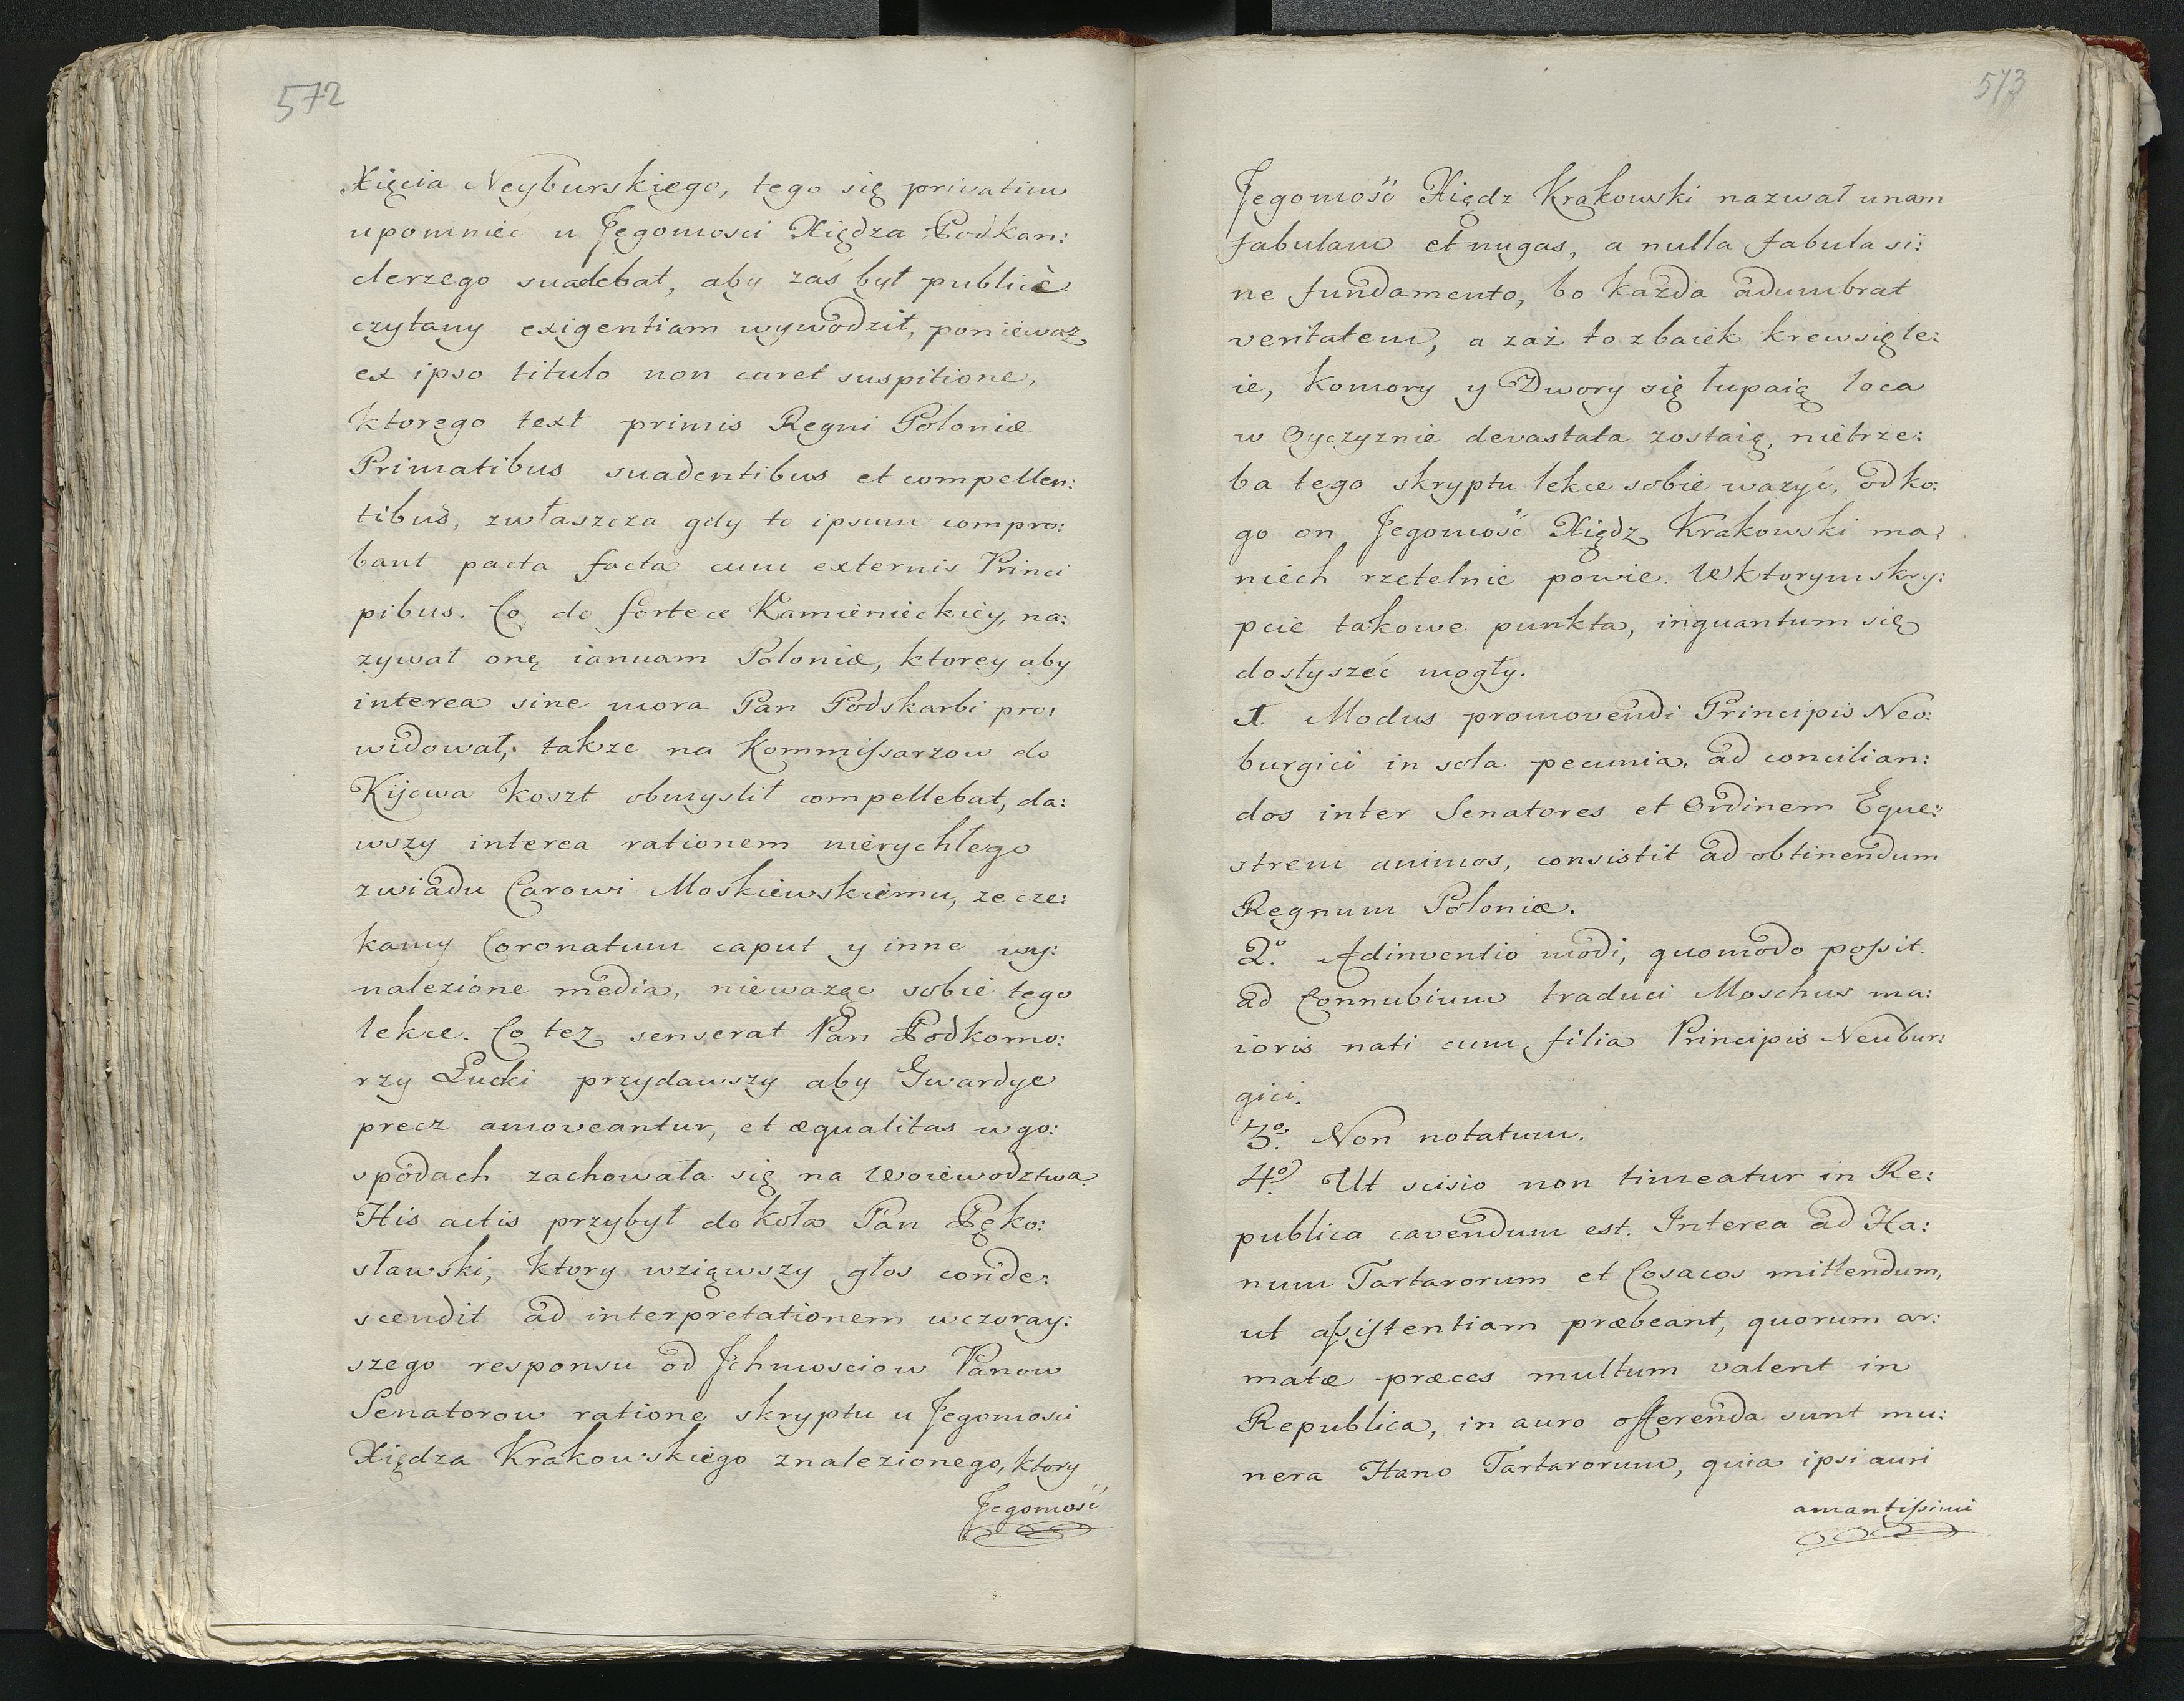 572
Xięcia Neyburskiego, tego się privatim
upomnieć u Jegomosci Xiędza Podkan:
clerzego suadebat, aby zaś był publicè
czytany exigentiam wywodził, ponieważ
ex ipso titulo non caret suspitione,
ktorego text primis Regni Poloniæ
Primatibus suadentibus et compellen:
tibus, zwłaszcza gdy to ipsum compro:
bant pacta facta cum externis Princi
pibus. Co do fortece Kamienieckiey, na:
zywał onę ianuam Poloniæ, ktorey aby
interea sine mora Pan Podskarbi pro:
widował, takze na Kommissarzow do
Kijowa koszt obmyslił compellebat, da:
wszy interea rationem nierychłego
zwiadu Carowi Moskiewskiemu, ze cze:
kamy Coronatum caput y inne wy:
nalezione media, nieważąc sobie tego
lekce. Co tez senserat Pan Podkomo:
rzy Łucki przydawszy aby Gwardye
precz amoveantur, et æqualitas w go:
spodach zachowała się na Woiewodztwa.
His actis przybył do koła Pan Pęko:
sławski, ktory wziąwszy głos conde:
scendit ad interpretationem wczoray:
szego responsu od Jchmosciow Panow
Senatorow ratione skryptu u Jegomosci
Xiędza Krakowskiego znalezionego, ktory
Jegomość
573
Jegomość Xiędz Krakowski nazwał unam
fabulam et nugas, a nulla fabula si:
ne fundamento, bo kazda adumbrat
veritatem, a zaż to z baiek krew się le:
ie, komory y Dwory się łupaią loca
w Oyczyznie devastata zostaią, nietrze:
ba tego skryptu lekce sobie wazyć, od ko:
go on Jegomość Xiędz Krakowski ma,
niech rzetelnie powie. W ktorym skry:
pcie takowe punkta, inquantum się
dosłyszeć mogły.
1. Modus promovendi Principis Neo:
burgici in sola pecunia, ad concilian:
dos inter Senatores et Ordinem Eque:
strem animos, consistit ad obtinendum
Regnum Poloniæ.
2º. Adinventio modi, quomodo possit
ad Connubium traduci Moschus ma:
ioris nati cum filia Principis Neubur:
gici.
3º. Non notatum.
4º. Ut scisio non timeatur in Re:
publica cavendum est. Interea ad Ha:
num Tartarorum et Cosacos mittendum,
ut assistentiam præbeant, quorum ar:
matæ præces multum valent in
Republica, in auro offerenda sunt mu:
nera Hano Tartarorum, quia ipsi auri
amantissimi